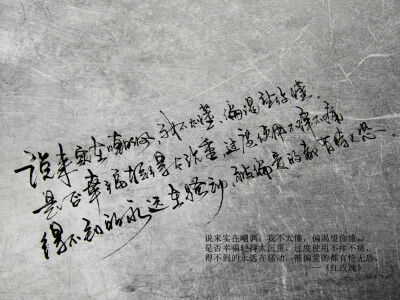 说来实在嘲讽,我不太懂、偏渴望你懂、
是否幸福轻得太沉重、过度使用不痒不痛
得不到的永远在骚动、被偏爱的都有恃无恐、
说来实在嘲讽,我不太懂,偏渴望你懂。
是否幸福轻得太沉重,过度使用不痒不痛,
得不到的永远在骚动,被偏爱的都有恃无恐。
—《红玫瑰》